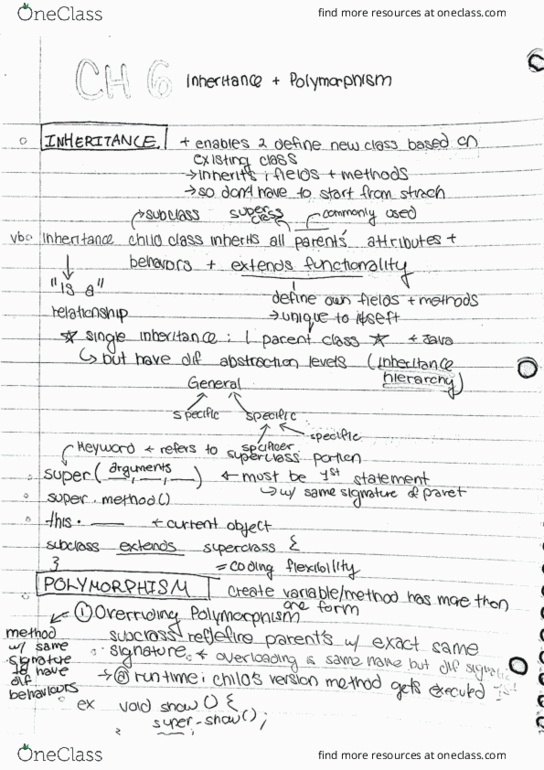 OneClass
find more resources at oneclass.com
CH 6 Inheritance + Polymorphism
INHERITANCE + enables 2 define new class based on
existing class
→ inherits; fields + methods
→ so don't have to start from strach
subclass super class commonly used
Inheritance child class inherits all parents' attributes +
behaviors + extends functionality
"is a"
relationship
define own fields + methods
→ unique to itself
☆ single inheritance: 1 parent class ☆ + Java
↳ but have dif abstraction levels (inheritance
hierarchy)
General
specific specific
specificer specific
Keyword + refers to superclass portion
super(arguments, , ) ← must be 1st statement
↳ w/ same signature of paret
super.method()
this. ___ + current object
subclass extends superclass {
} = coding flexibility
POLYMORPHISM create variable/method has more then
one form
① Overriding Polymorphism
method
w/ same
signature
to have
dif
behaviours
subclass redefine parent's w/ exact same
signature. + overloading is same name but dif signature
→ @ runtime; child's version method gets executed
ex void show() {
super.show();
}
OneClass
find more resources at oneclass.com